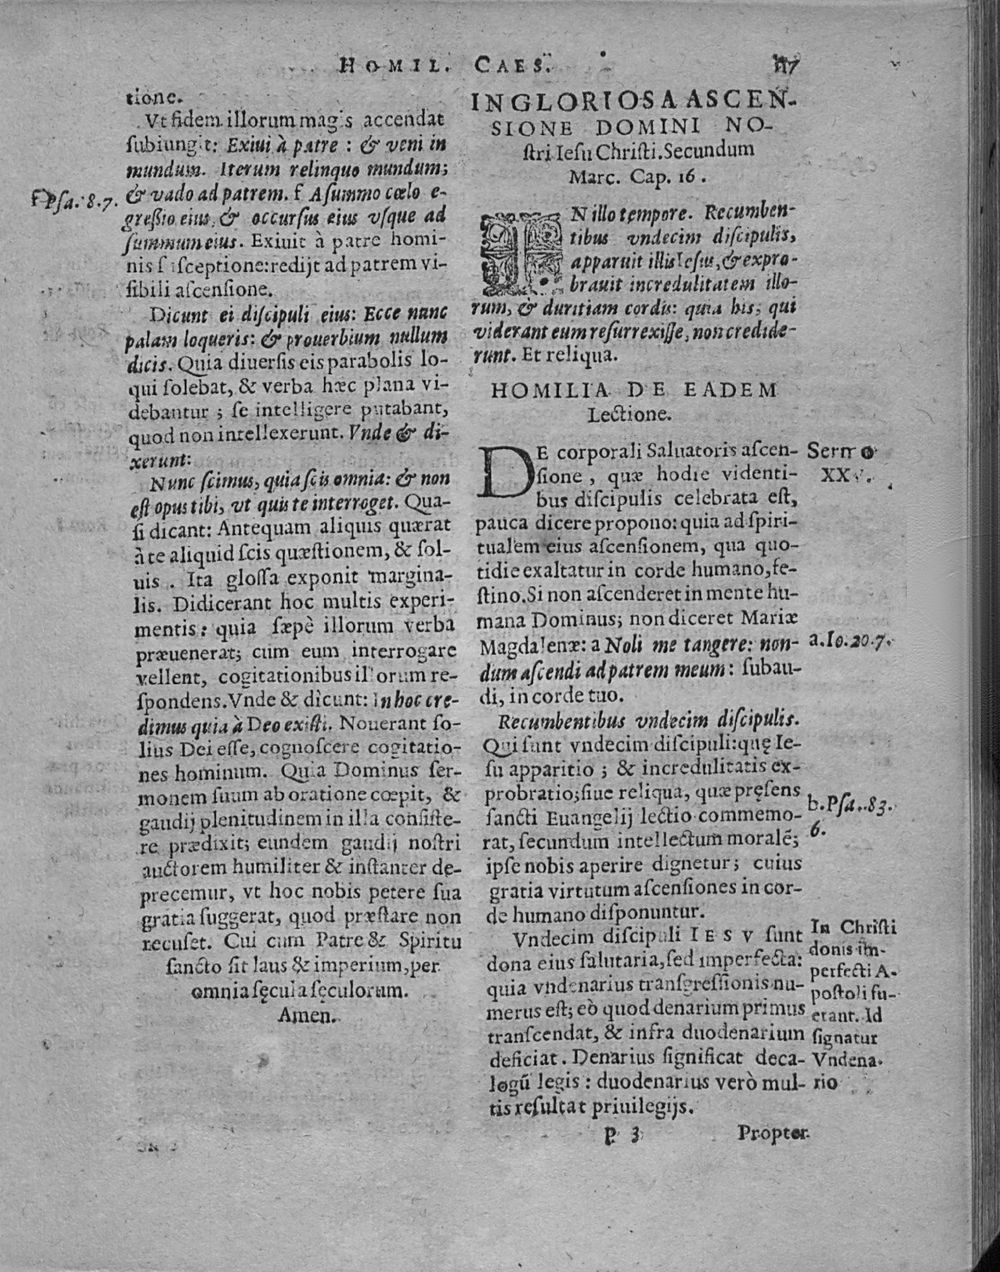 HOMIL. CAES. 117
tione.
Vt fidem illorum magis accendat
subiungit: Exiui à patre : & veni in
mundum. Iterum relinquo mundum;
& vado ad patrem. f A summo cœlo e-
f Psa. 8. 7.
gressio eius, & occursus eius vsque ad
summum eius. Exiuit à patre homi-
nis susceptione: redijt ad patrem vi-
sibili ascensione.
Dicunt ei discipuli eius: Ecce nunc
palam loqueris: & prouerbium nullum
dicis. Quia diuersis eis parabolis lo-
qui solebat, & verba hæc plana vi-
debantur ; se intelligere putabant,
quod non intellexerunt. Vnde & di-
xerunt:
Nunc scimus, quia scis omnia: & non
est opus tibi, vt quis te interroget. Qua-
si dicant: Antequam aliquis quærat
à te aliquid scis quæstionem, & sol-
uis . Ita glossa exponit margina-
lis. Didicerant hoc multis experi-
mentis: quia sæpè illorum verba
præuenerat; cum eum interrogare
vellent, cogitationibus illorum re-
spondens. Vnde & dicunt: In hoc cre-
dimus quia à Deo existi. Nouerant so-
lius Dei esse, cognoscere cogitatio-
nes hominum. Quia Dominus ser-
monem suum ab oratione cœpit, &
gaudij plenitudinem in illa consiste-
re prædixit; eundem gaudij nostri
auctorem humiliter & instanter de-
precemur, vt hoc nobis petere sua
gratia suggerat, quod præstare non
recuset. Cui cum Patre & Spiritu
sancto sit laus & imperium, per
omnia sęcula sęculorum.
Amen.
IN GLORIOSA ASCEN-
SIONE DOMINI NO-
stri Iesu Christi. Secundum
Marc. Cap. 16.
IN illo tempore. Recumben-
tibus vndecim discipulis,
apparuit illis Iesus, & expro-
brauit incredulitatem illo-
rum, & duritiam cordis: quia his, qui
viderant eum resurrexisse, non credide-
runt. Et reliqua.
HOMILIA DE EADEM
Lectione.
DE corporali Saluatoris ascen-
sione, quæ hodie videnti-
bus discipulis celebrata est,
pauca dicere propono: quia ad spiri-
tualem eius ascensionem, qua quo-
tidie exaltatur in corde humano, fe-
stino. Si non ascenderet in mente hu-
mana Dominus; non diceret Mariæ
Magdalenæ: a Noli me tangere: non-
dum ascendi ad patrem meum: subau-
di, in corde tuo.
Recumbentibus vndecim discipulis.
Qui sunt vndecim discipuli: quę Ie-
su apparitio ; & incredulitatis ex-
probratio; siue reliqua, quæ pręsens
sancti Euangelij lectio commemo-
rat, secundum intellectum moralē;
ipse nobis aperire dignetur; cuius
gratia virtutum ascensiones in cor-
de humano disponuntur.
Vndecim discipuli IESV sunt
dona eius salutaria, sed imperfecta:
quia vndenarius transgressionis nu-
merus est; eò quod denarium primus
transcendat, & infra duodenarium
deficiat. Denarius significat deca-
logū legis : duodenarius verò mul-
tis resultat priuilegijs.
Sermo
XXV.
a. Io. 20. 7.
b. Psa. 83.
6.
In Christi
donis im-
perfecti A-
postoli fu-
erant. Id
signatur
Vndena-
rio
P 3 Propter